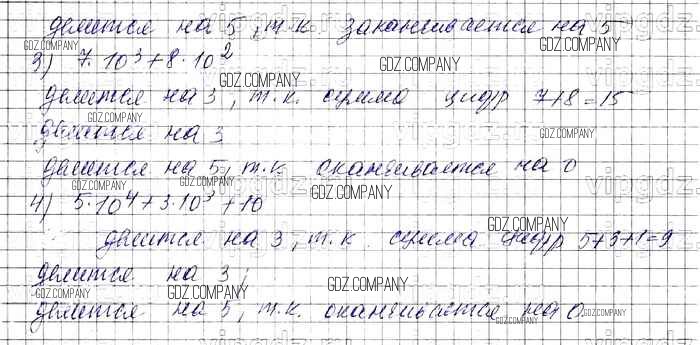 делится на 5, т.к. заканчивается на 5
3) 7·10³+8·10²
делится на 3, т.к. сумма цифр 7+8=15
делится на 3
делится на 5, т.к. оканчивается на 0
4) 5·10⁴+3·10³+10
делится на 3, т.к. сумма цифр 5+3+1=9
делится на 3;
делится на 5, т.к. оканчивается на 0.
GDZ.COMPANY
vipgdz.ru